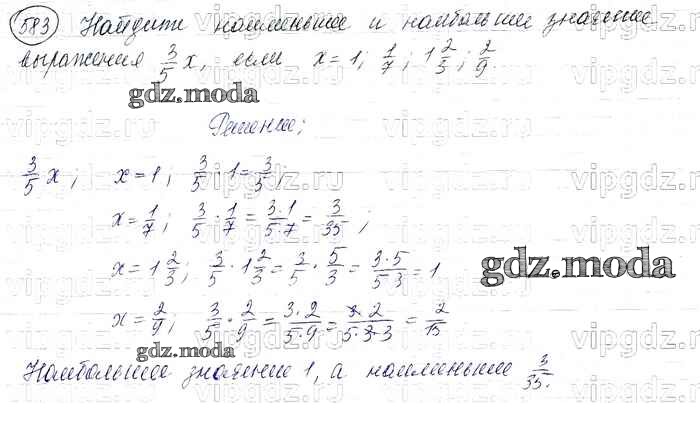 583 Найдите наименьшее и наибольшее значение
выражения 3/5 x, если x = 1; 1/7; 1 2/3; 2/9.
gdz.moda
Решение:
3/5 x; x = 1; 3/5 · 1 = 3/5;
x = 1/7; 3/5 · 1/7 = 3·1/5·7 = 3/35;
x = 1 2/3; 3/5 · 1 2/3 = 3/5 · 5/3 = 3·5/5·3 = 1
gdz.moda
x = 2/9; 3/5 · 2/9 = 3·2/5·9 = 3·2/5·3·3 = 2/15
gdz.moda
Наибольшее значение 1, а наименьшее 3/35.
vipgdz.ru